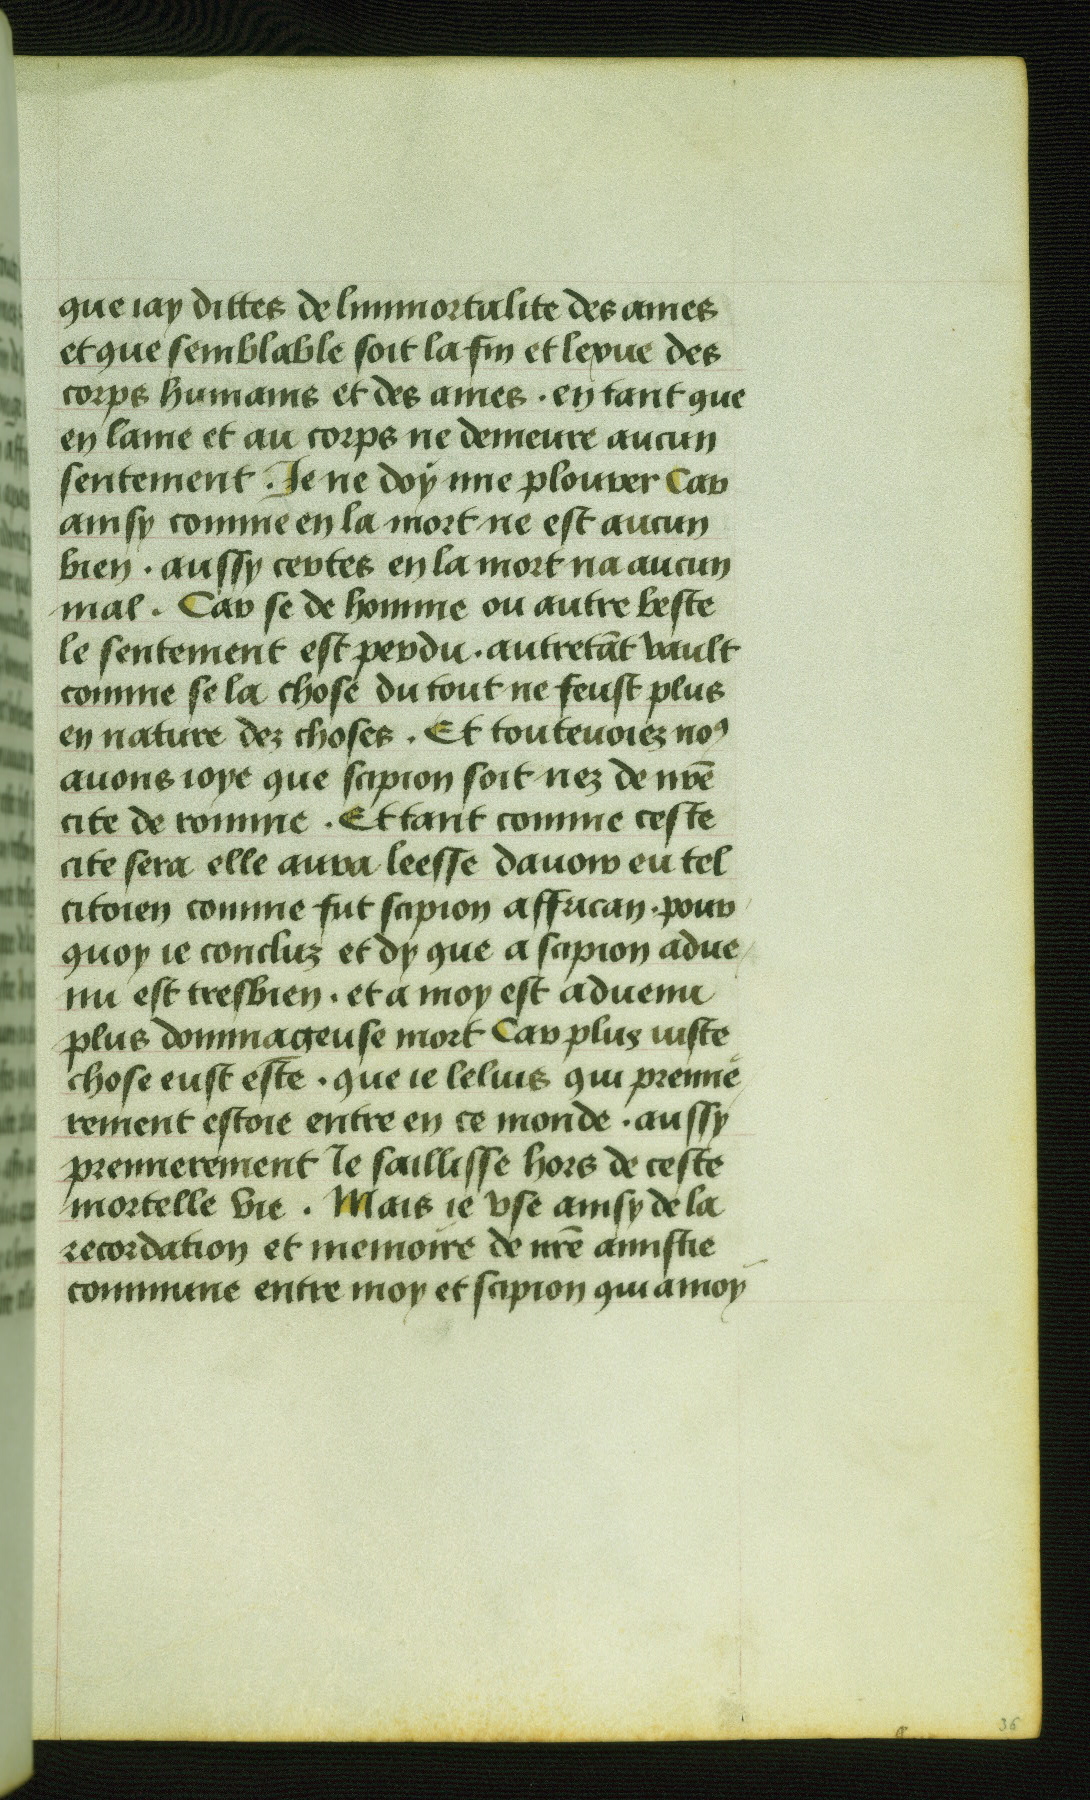 que iay dittes de limmortalite des ames
et que semblable soit la fin et lexue des
corps humains et des ames · en tant que
en lame et au corps ne demeure aucun
sentement . Je ne doy mie plourer Car
ainsy comme en la mort ne est aucun
bien · aussy certes en la mort na aucun
mal . Car se de homme ou autre beste
le sentement est perdu · autretāt vault
comme se la chose du tout ne feust plus
en nature dez choses . Et toutevoiez noꝰ
auons ioye que scipion soit nez de nr̄e
cite de romme . Et tant comme ceste
cite sera elle aura leesse dauoir eu tel
citoien comme fut scipion affrican · pour
quoy ie concluz et dy que a scipion adue
nu est tresbien · et a moy est aduenu
plus dommageuse mort Car plus iuste
chose eust este · que ie leluis qui premie
rement estoie entre en ce monde · aussy
premierement Je saillisse hors de ceste
mortelle vie . Mais ie vse ainsy de la
recordation et memoire de nr̄e amistie
commune entre moy et scipion qui a moy
36